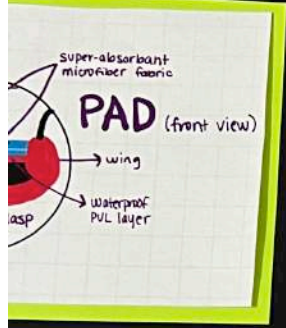 super-absorbant
microfiber fabric
PAD (front view)
wing
waterproof
PUL layer
asp